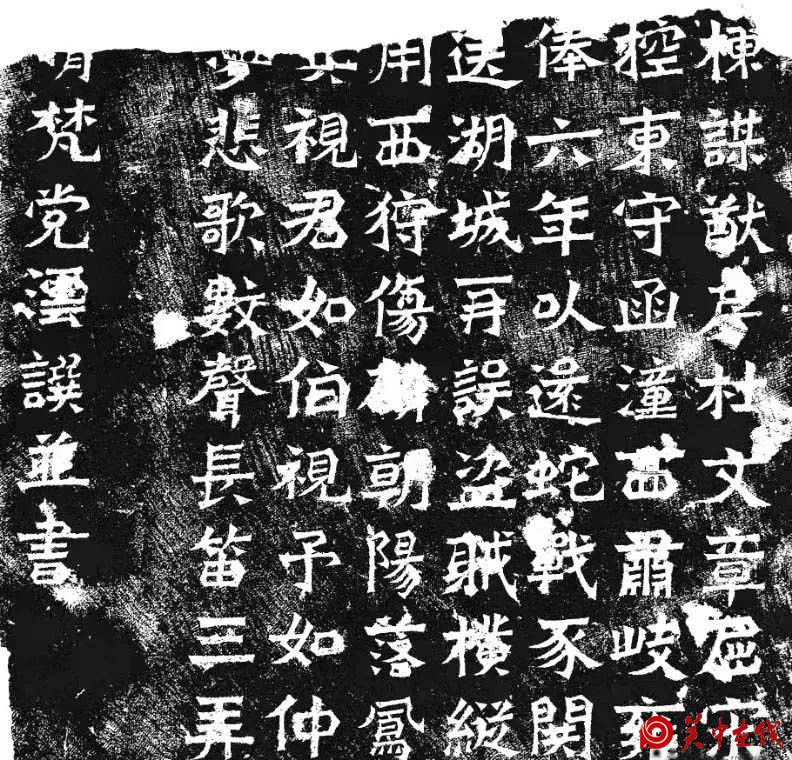 棟謀猷房杜文章屈宋
控東守函潼西肅岐雍
俸六年以還蛇戰豕
送湖城再誤盜賊橫縱
用西狩傷麟朝陽落鳳
視君如伯視予如仲
夢悲歌數聲長笛三弄
梵党澐譔並書
关中在线